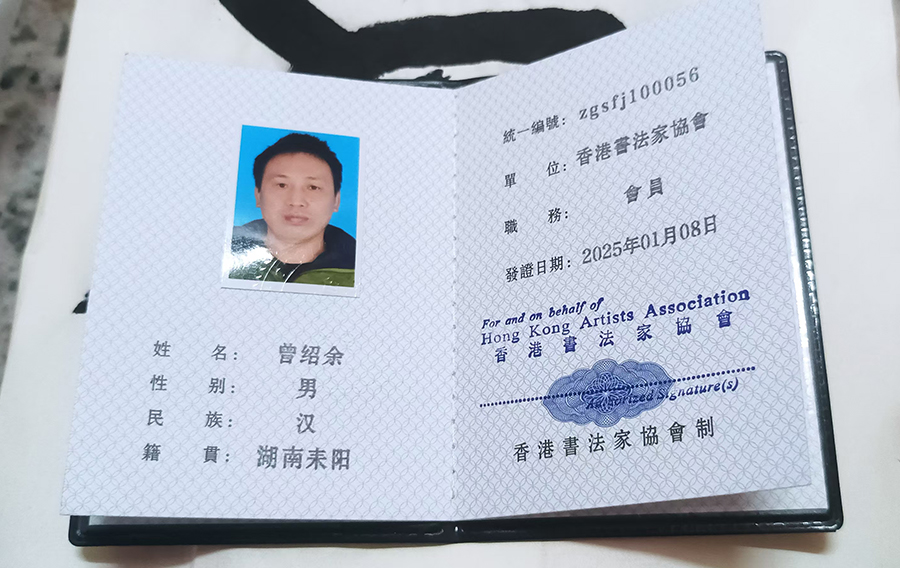 姓名：曾绍余
性别：男
民族：汉
籍貫：湖南耒阳
統一编號：zgsfj100056
單位：香港書法家協會
職務：會員
發證日期：2025年01月08日
For and on behalf of
Hong Kong Artists Association
香港書法家協會
Authorized Signature(s)
香港書法家協會制